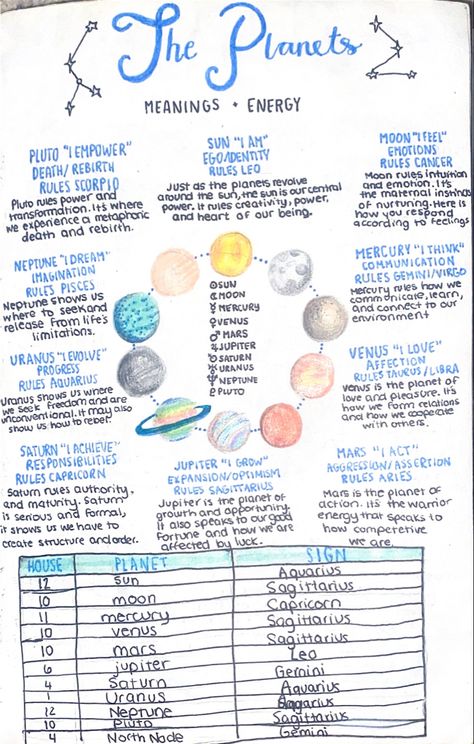 The Planets
MEANINGS + ENERGY
PLUTO "I EMPOWER"
DEATH/ REBIRTH
RULES SCORPIO
Pluto rules power and
transformation. It's where
we experience a metaphoric
death and rebirth.
SUN "I AM"
EGO/IDENTITY
RULES LEO
Just as the planets revolve
around the sun, the sun is our central
power. It rules creativity, power,
and heart of our being.
MOON "I FEEL"
EMOTIONS
RULES CANCER
Moon rules intuition
and emotion. It's
the maternal instincs
of nurturing. Here is
how you respond
according to feelings
NEPTUNE "I DREAM"
IMAGINATION
RULES PISCES
Neptune shows us
where to seek and
release from life's
limitations.
☉ SUN
☾ MOON
☿ MERCURY
♀ VENUS
♂ MARS
♃ JUPITER
♄ SATURN
♅ URANUS
♆ NEPTUNE
♇ PLUTO
MERCURY "I THINK"
COMMUNICATION
RULES GEMINI/VIRGO
Mercury rules how we
communicate, learn,
and connect to our
environment
URANUS "I EVOLVE"
PROGRESS
RULES AQUARIUS
Uranus shows us where
we seek freedom and are
unconventional. It may also
show us how to rebel.
VENUS "I LOVE"
AFFECTION
RULES TAURUS/LIBRA
Venus is the planet of
love and pleasure. It's
how we form relations
and how we cooperate
with others.
SATURN "I ACHIEVE"
RESPONSIBILITIES
RULES CAPRICORN
Saturn rules authority,
and maturity. Saturn
is serious and formal,
it shows us we have to
create structure and order.
JUPITER "I GROW"
EXPANSION/OPTIMISM
RULES SAGITTARIUS
Jupiter is the planet of
growth and opportunity.
It also speaks to our good
fortune and how we are
affected by luck.
MARS "I ACT"
AGGRESSION/ASSERTION
RULES ARIES
Mars is the planet of
action. It's the warrior
energy that speaks to
how competetive
we are.
HOUSE PLANET SIGN
12 Sun Aquarius
10 moon Sagittarius
11 mercury Capricorn
10 venus Sagittarius
10 mars Sagittarius
6 jupiter Leo
4 Saturn Gemini
1 Uranus Aquarius
12 Neptune Aquarius
10 Pluto Sagittarius
4 North Node Gemini